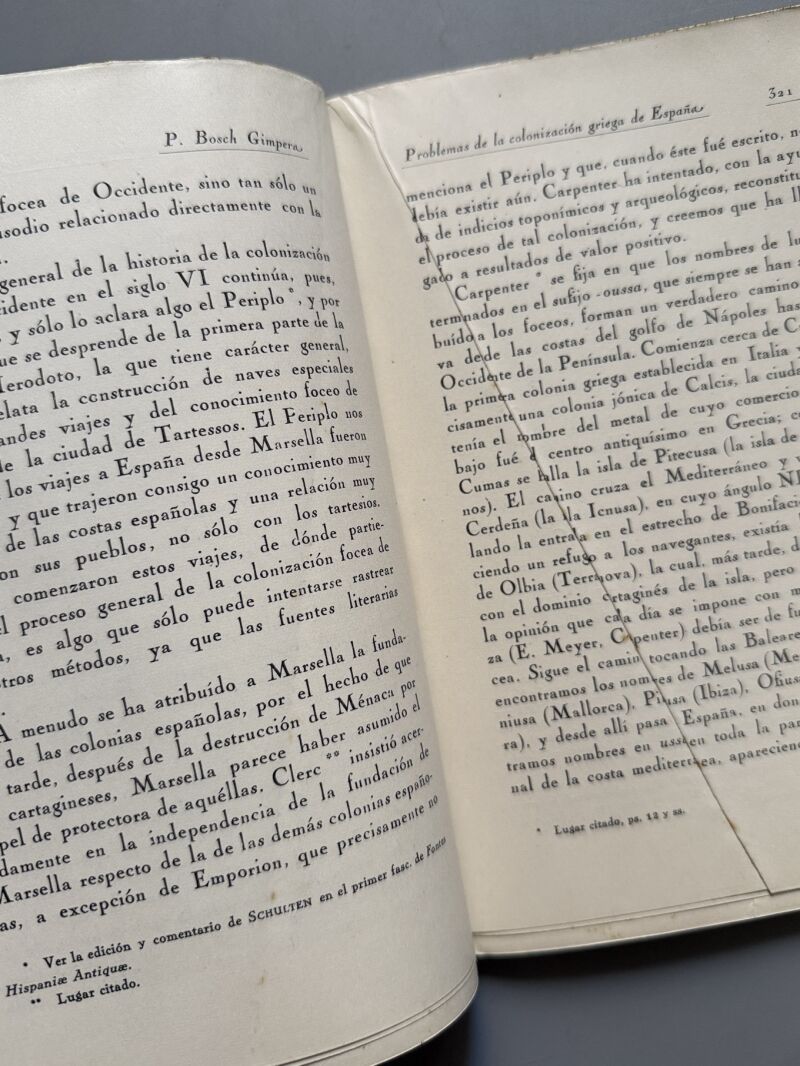 P. Bosch Gimpera
focea de Occidente, sino tan sólo un
isodio relacionado directamente con la
general de la historia de la colonización
cidente en el siglo VI continúa, pues,
, y sólo lo aclara algo el Periplo *, y por
que se desprende de la primera parte de la
Herodoto, la que tiene carácter general,
elata la construcción de naves especiales
andes viajes y del conocimiento foceo de
de la ciudad de Tartessos. El Periplo nos
los viajes a España desde Marsella fueron
y que trajeron consigo un conocimiento muy
de las costas españolas y una relación muy
on sus pueblos, no sólo con los tartesios.
comenzaron estos viajes, de dónde partie-
el proceso general de la colonización focea de
a, es algo que sólo puede intentarse rastrear
tros métodos, ya que las fuentes literarias
A menudo se ha atribuído a Marsella la funda-
de las colonias españolas, por el hecho de que
tarde, después de la destrucción de Ménaca por
cartagineses, Marsella parece haber asumido el
pel de protectora de aquéllas. Clerc ** insistió acer-
damente en la independencia de la fundación de
Marsella respecto de la de las demás colonias españo-
as, a excepción de Emporion, que precisamente no
* Ver la edición y comentario de SCHULTEN en el primer fasc. de Fontes
Hispaniæ Antiquæ.
** Lugar citado.
Problemas de la colonización griega de España
321
menciona el Periplo y que, cuando éste fué escrito, n
debía existir aún. Carpenter ha intentado, con la ayu
da de indicios toponímicos y arqueológicos, reconstitu
el proceso de tal colonización, y creemos que ha ll
gado a resultados de valor positivo.
Carpenter * se fija en que los nombres de lu
terminados en el sufijo -oussa, que siempre se han a
buído a los foceos, forman un verdadero camino
va desde las costas del golfo de Nápoles has
Occidente de la Península. Comienza cerca de C
la primera colonia griega establecida en Italia y
cisamente una colonia jónica de Calcis, la ciuda
tenía el nombre del metal de cuyo comercio
bajo fué centro antiquísimo en Grecia; c
Cumas se halla la isla de Pitecusa (la isla de
nos). El camino cruza el Mediterráneo y v
Cerdeña (la isla Icnusa), en cuyo ángulo NE
lando la entrada en el estrecho de Bonifaci
ciendo un refugio a los navegantes, existía
de Olbia (Terranova), la cual, más tarde, d
con el dominio cartaginés de la isla, pero
la opinión que cada día se impone con m
za (E. Meyer, Carpenter) debía ser de fu
cea. Sigue el camino tocando las Baleare
encontramos los nombres de Melusa (Me
niusa (Mallorca), Pitiusa (Ibiza), Ofius
ra), y desde allí pasa España, en don
tramos nombres en ussa en toda la par
nal de la costa mediterránea, aparecien
* Lugar citado, ps. 12 y ss.